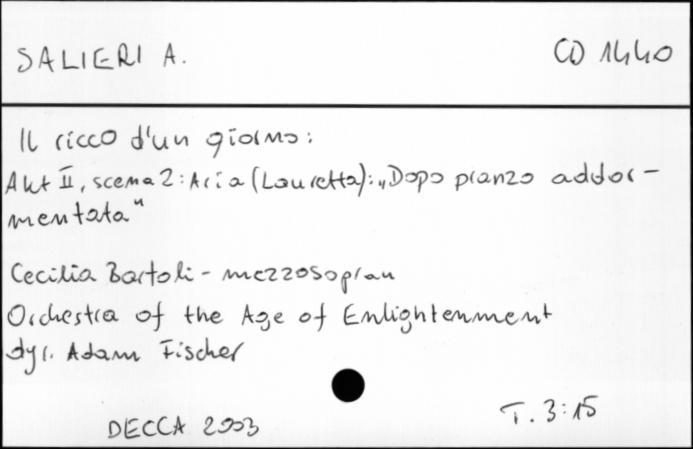 SALIERI A. CD 1440
Il ricco d'un giorno:
Akt II, scena 2: Aria (Lauretta): „Dopo pranzo addor-
mentata"
Cecilia Bartoli - mezzosopran
Orchestra of the Age of Enlightenment
dyr. Adam Fischer
DECCA 2003 T. 3:15